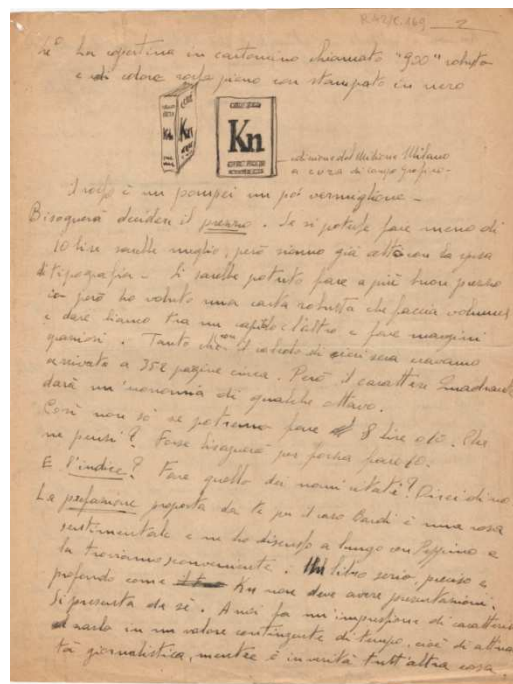 R42/C.169 2
ha copertina in cartoncino chiamato "900" robusto
e di colore rosso piano con stampato in nero
Kn
Kn
edizione del Milione Milano
a cura di campo grafico -
Il rosso è un pompei un po' vermiglione -
Bisognerà decidere il prezzo. Se si potesse fare meno di
10 lire sarebbe meglio, però siamo già con la spesa
di tipografia - Si sarebbe potuto fare a più buon prezzo
io però ho voluto una carta robusta che faccia volume
e dare bianco tra un capitolo e l'altro e fare margini
spaziosi. Tanto che il calcolo di ieri sera eravamo
arrivati a 352 pagine circa. Però il carattere Quadrante
darà un'economia di qualche ottavo.
Così non so se potremo fare 8 lire o 10. Che
ne pensi? Forse bisognerà per forza fare 10.
E l'indice? Fare quello dei nomi citati? Dicci di no
La prefazione proposta da te per il caso Bardi è una cosa
sentimentale e ne ho discusso a lungo con Peppino e
la troviamo sconveniente. Un libro serio, preciso e
profondo come Kn non deve avere presentazioni.
Si presenta da sé. A noi fa un'impressione di carattere
in un valore contingente di tempo, cioè di attuali
tà giornalistica, mentre è in verità tutt'altra cosa.